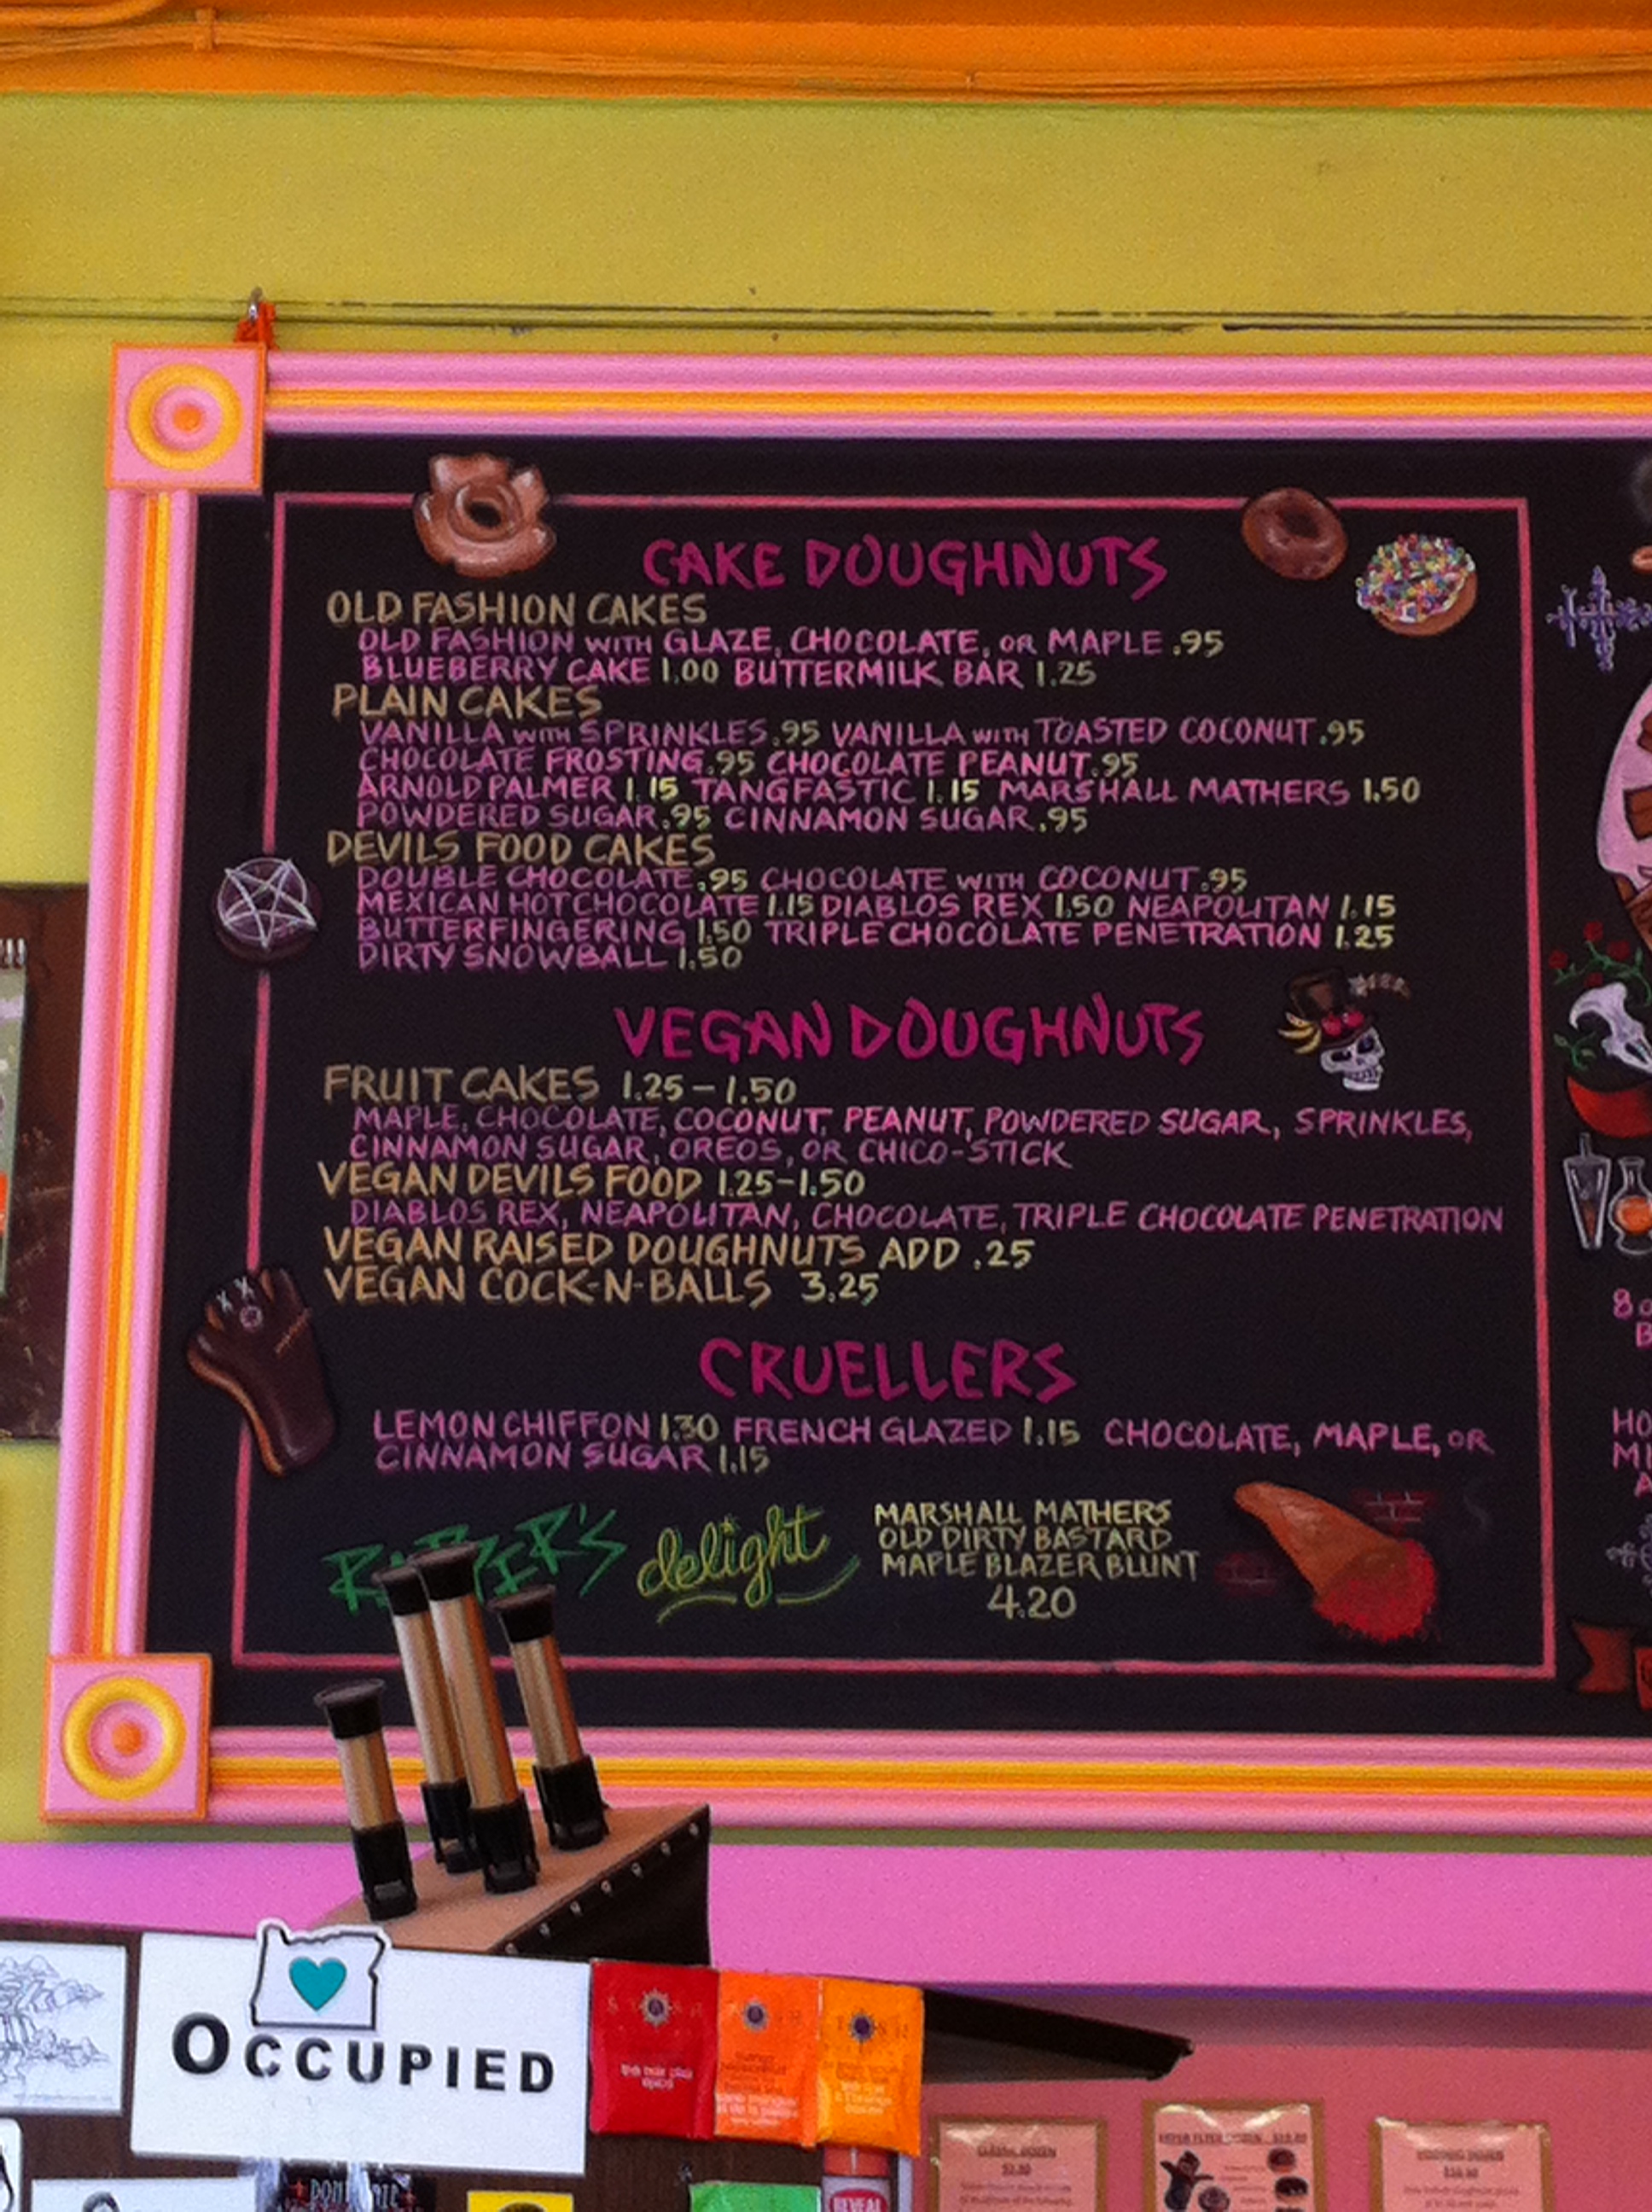 CAKE DOUGHNUTS
OLD FASHION CAKES
OLD FASHION WITH GLAZE, CHOCOLATE, OR MAPLE .95
BLUEBERRY CAKE 1.00 BUTTERMILK BAR 1.25
PLAIN CAKES
VANILLA WITH SPRINKLES .95 VANILLA WITH TOASTED COCONUT .95
CHOCOLATE FROSTING .95 CHOCOLATE PEANUT .95
ARNOLD PALMER 1.15 TANGFASTIC 1.15 MARSHALL MATHERS 1.50
POWDERED SUGAR .95 CINNAMON SUGAR .95
DEVILS FOOD CAKES
DOUBLE CHOCOLATE .95 CHOCOLATE WITH COCONUT .95
MEXICAN HOT CHOCOLATE 1.15 DIABLOS REX 1.50 NEAPOLITAN 1.15
BUTTERFINGERING 1.50 TRIPLE CHOCOLATE PENETRATION 1.25
DIRTY SNOWBALL 1.50
VEGAN DOUGHNUTS
FRUIT CAKES 1.25 - 1.50
MAPLE, CHOCOLATE, COCONUT, PEANUT, POWDERED SUGAR, SPRINKLES,
CINNAMON SUGAR, OREOS, OR CHICO-STICK
VEGAN DEVILS FOOD 1.25-1.50
DIABLOS REX, NEAPOLITAN, CHOCOLATE, TRIPLE CHOCOLATE PENETRATION
VEGAN RAISED DOUGHNUTS ADD .25
VEGAN COCK-N-BALLS 3.25
CRUELLERS
LEMON CHIFFON 1.30 FRENCH GLAZED 1.15 CHOCOLATE, MAPLE, OR
CINNAMON SUGAR 1.15
RAPPER'S delight
MARSHALL MATHERS
OLD DIRTY BASTARD
MAPLE BLAZER BLUNT
4.20
OCCUPIED
REVEAL